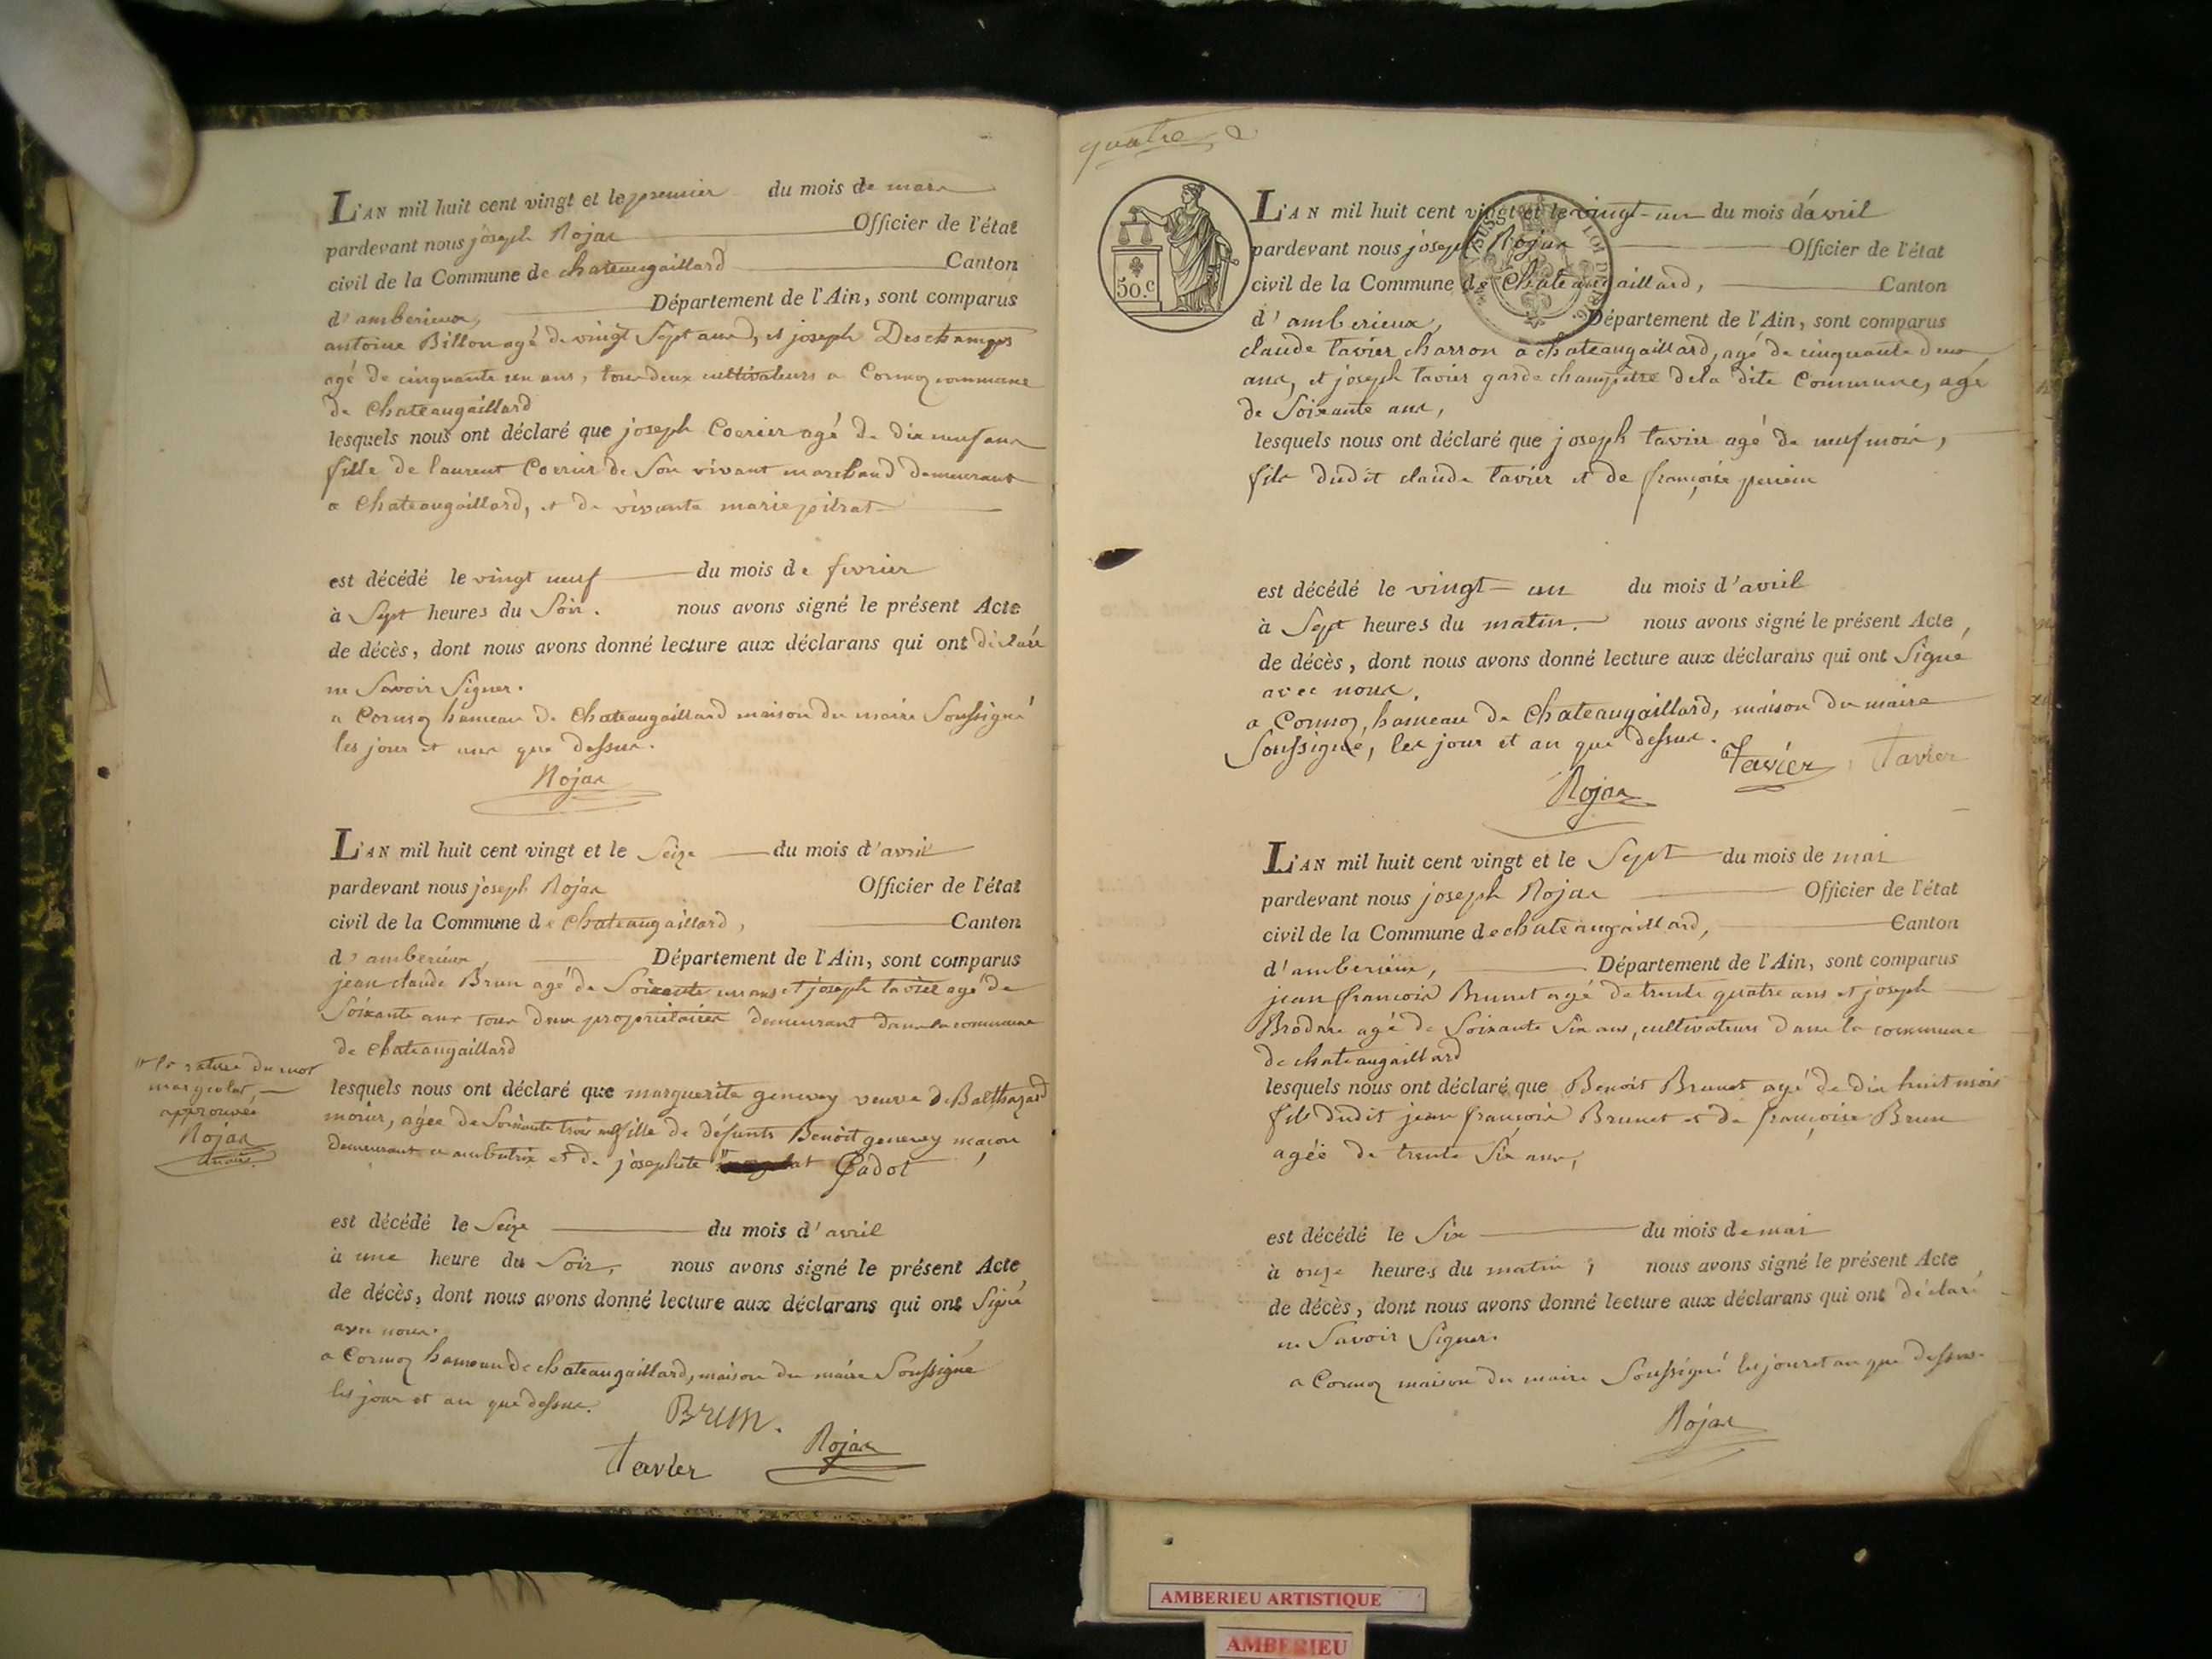 L'AN mil huit cent vingt et le premier du mois de mars
pardevant nous joseph Rojas Officier de l'état
civil de la Commune de chateaugaillard Canton
d'amberieux, Département de l'Ain, sont comparus
antoine Billon agé de vingt Sept ans, et joseph Deschamps
agé de cinquante un ans, tous deux cultivateurs a Cormoz commune
de Chateaugaillard
lesquels nous ont déclaré que joseph Coerier agé de dix neuf ans
fille de laurent Coerier de Son vivant marchand demeurant
a Chateaugaillard, et de vivante marie pitrat
est décédé le vingt neuf du mois de fevrier
à Sept heures du Soir. nous avons signé le présent Acte
de décès, dont nous avons donné lecture aux déclarans qui ont déclaré
ne Savoir Signer.
a Cormoz hameau de Chateaugaillard maison du maire Soussigné
les jour et an que dessus.
Rojas
L'AN mil huit cent vingt et le Seize du mois d'avril
pardevant nous joseph Rojas Officier de l'état
civil de la Commune de Chateaugaillard, Canton
d'amberieux, Département de l'Ain, sont comparus
jean claude Brun agé de Soixante un ans et joseph tavier agé de
Soixante ans tous deux propriétaires demeurant dans la commune
de chateaugaillard
lesquels nous ont déclaré que marguerite genevey veuve de Balthazard
morier, agée de Soixante trois ans fille de défunts Benoit genevey maçon
demeurant a ambutrix et de josephte Cadot
" la rature du mot
approuvée
Rojas
maire
est décédé le Seize du mois d'avril
à une heure du Soir, nous avons signé le présent Acte
de décès, dont nous avons donné lecture aux déclarans qui ont Signé
avec nous.
a Cormoz hameau de chateaugaillard, maison du maire Soussigné
les jour et an que dessus.
Brun.
tavier Rojas
quatre
50.c
L'AN mil huit cent vingt et le vingt-un du mois d'avril
pardevant nous joseph Rojas Officier de l'état
civil de la Commune de Chateaugaillard, Canton
d'amberieux, Département de l'Ain, sont comparus
claude tavier charron a chateaugaillard, agé de cinquante deux
ans, et joseph tavier garde champetre de la dite Commune, agé
de Soixante ans,
lesquels nous ont déclaré que joseph tavier agé de neuf mois,
fils dudit claude tavier et de françoise
est décédé le vingt-un du mois d'avril
à Sept heures du matin. nous avons signé le présent Acte
de décès, dont nous avons donné lecture aux déclarans qui ont Signé
avec nous.
a Cormoz, hameau de Chateaugaillard, maison du maire
Soussigné, les jour et an que dessus.
Tavier Tavier
Rojas
L'AN mil huit cent vingt et le Sept du mois de mai
pardevant nous joseph Rojas Officier de l'état
civil de la Commune de chateaugaillard, Canton
d'amberieux, Département de l'Ain, sont comparus
jean françois Brunet agé de trente quatre ans et joseph
agé de Soixante Six ans, cultivateurs dans la commune
de chateaugaillard
lesquels nous ont déclaré que Benoit Brunet agé de dix huit mois
fils dudit jean françois Brunet et de françoise Brun
agée de trente Six ans,
est décédé le Six du mois de mai
à onze heures du matin; nous avons signé le présent Acte
de décès, dont nous avons donné lecture aux déclarans qui ont déclaré
ne Savoir Signer.
a Cormoz maison du maire Soussigné les jour et an que dessus.
Rojas
AMBERIEU ARTISTIQUE
AMBERIEU